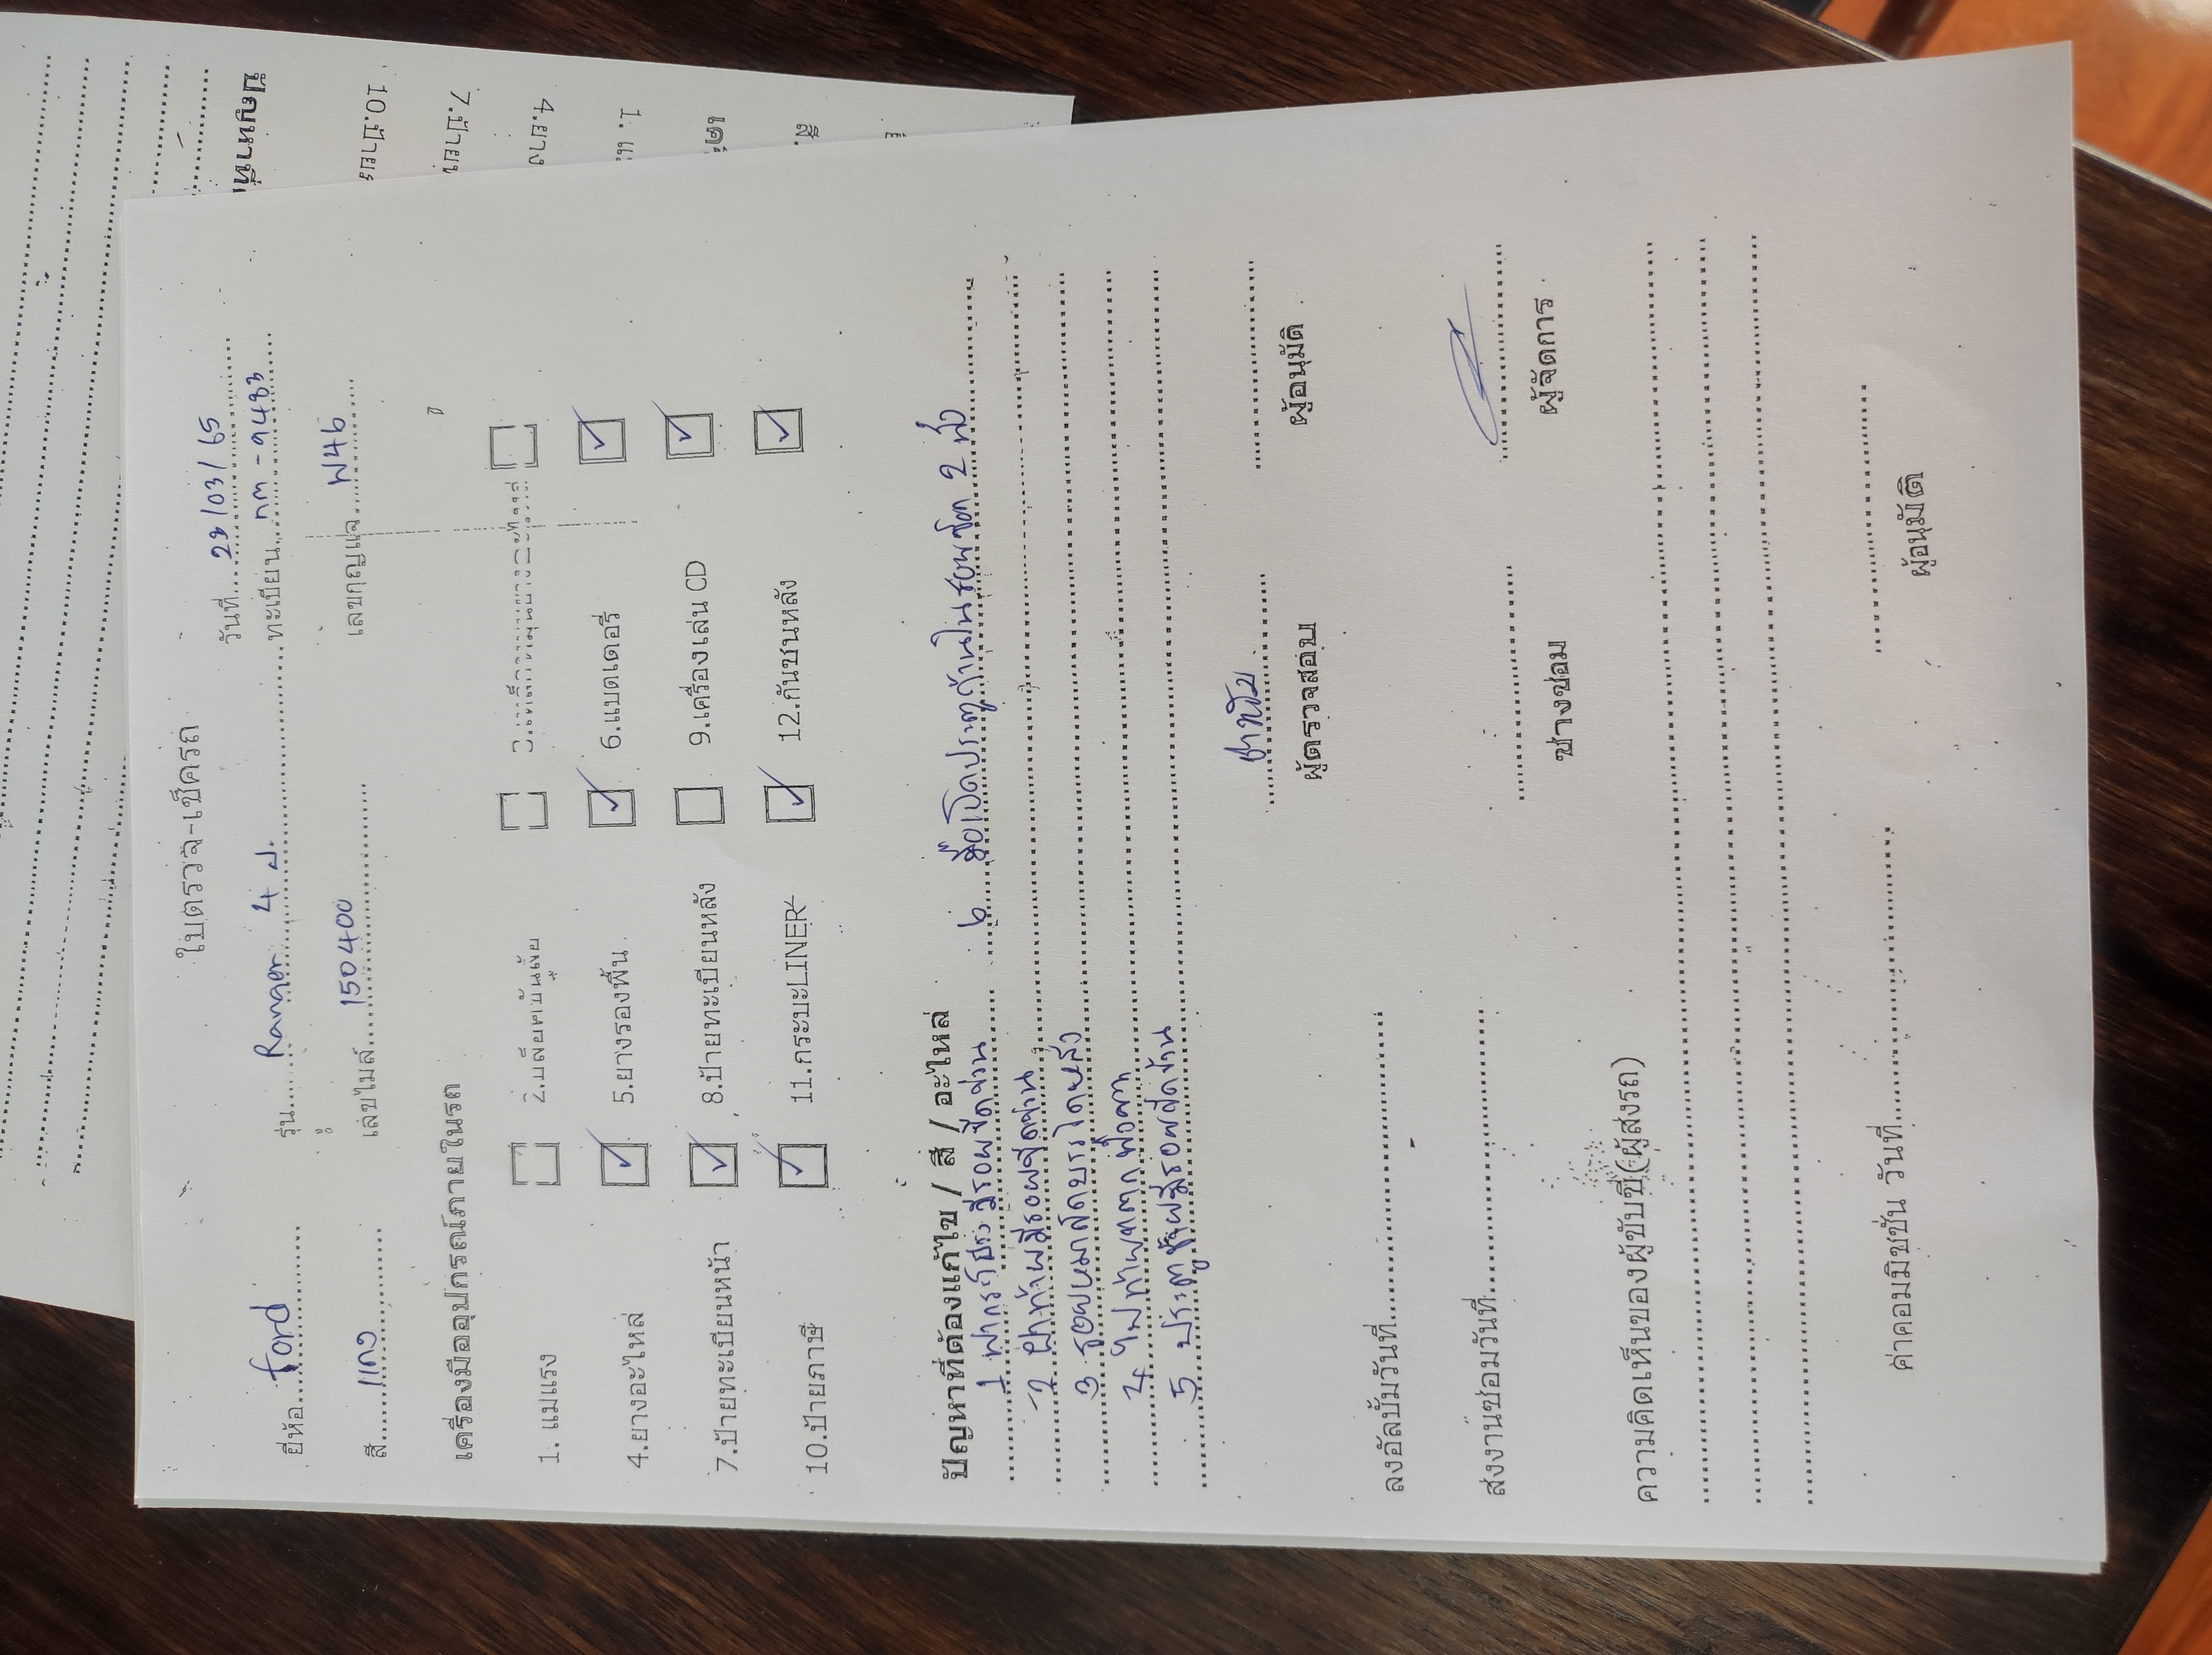 ใบตรวจ-เช็ครถ
วันที่ 23/03/65
ยี่ห้อ ford รุ่น Ranger 4 ป. ทะเบียน กฅ - ๑483
สี แดง เลขไมล์ 150400 เลขกุญแจ W46
เครื่องมืออุปกรณ์ภายในรถ
1. แม่แรง 2.บล็อคขันน๊อต
4.ยางอะไหล่ 5.ยางรองพื้น 6.แบตเตอรี่
7.ป้ายทะเบียนหน้า 8.ป้ายทะเบียนหลัง 9.เครื่องเล่น CD
10.ป้ายภาษี 11.กระบะLINER 12.กันชนหลัง
ปัญหาที่ต้องแก้ไข / สี / อะไหล่
1 ฝากระโปรง มีรอยขีดข่วน 6 มือเปิดประตูด้านใน 2
2 ฝาท้ายมีรอยขีดข่วน
3
4 ไฟท้ายแตก
5 ประตู มีรอยขีดข่วน
ผู้ตรวจสอบ ผู้อนุมัติ
ลงอัลบั้มวันที่
ส่งงานซ่อมวันที่ ช่างซ่อม ผู้จัดการ
ความคิดเห็นของผู้ขับขี่(ผู้ส่งรถ)
ค่าคอมมิชชั่น วันที่ ผู้อนุมัติ
ปัญหาที่
10.ป้าย
7.ป้าย
4.ยาง
1. แ